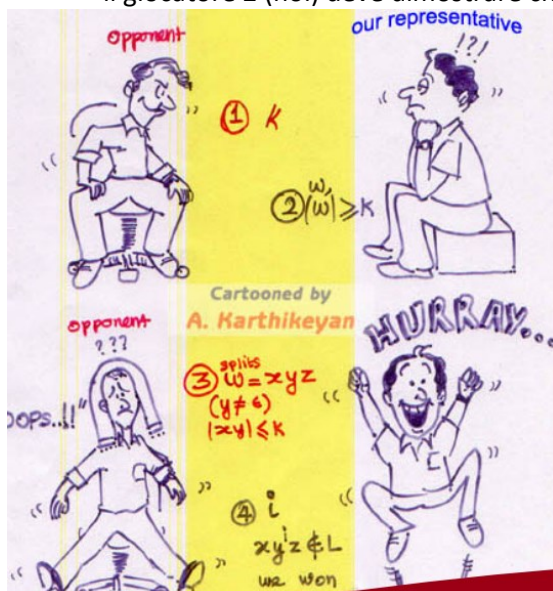 opponent
our representative
!?!
① K
② w, |w| ⩾ K
Cartooned by
A. Karthikeyan
opponent
???
HURRAY...
③ splits
w = xyz
(y ≠ ϵ)
|xy| ⩽ K
OOPS..!!"
④ i
xyⁱz ∉ L
we won